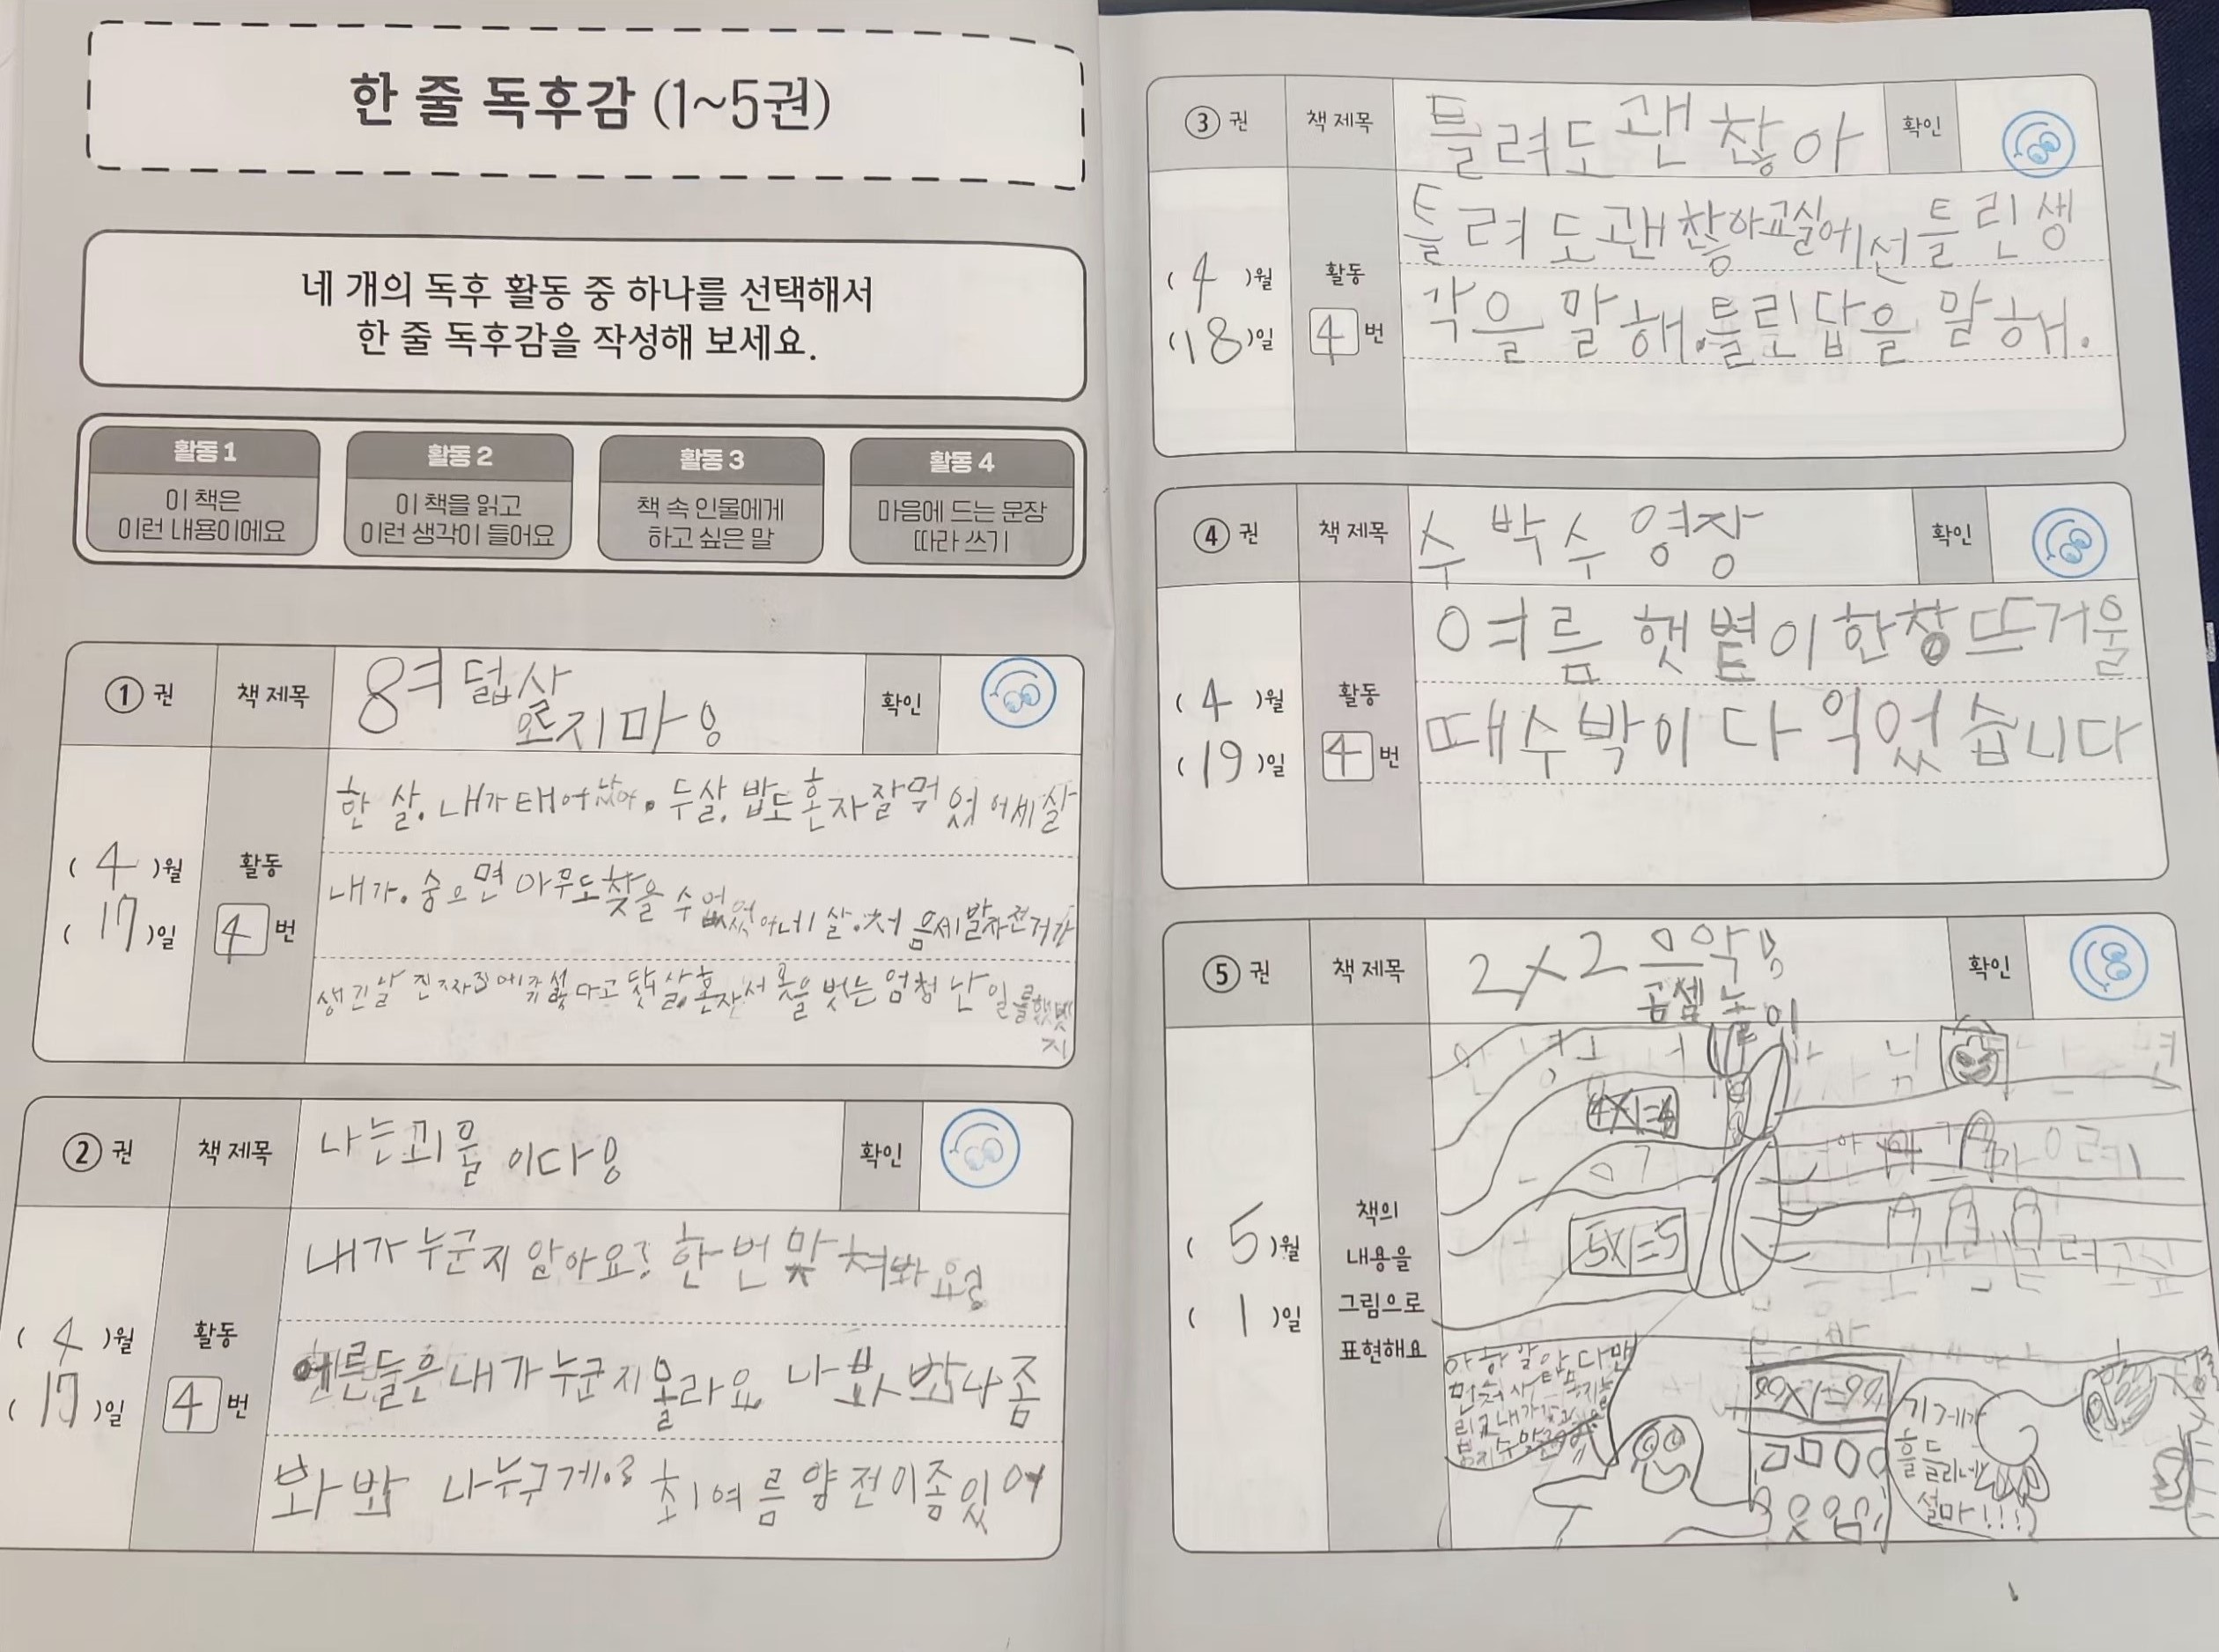 한 줄 독후감 (1~5권)
네 개의 독후 활동 중 하나를 선택해서
한 줄 독후감을 작성해 보세요.
활동 1
이 책은
이런 내용이에요
활동 2
이 책을 읽고
이런 생각이 들어요
활동 3
책 속 인물에게
하고 싶은 말
활동 4
마음에 드는 문장
따라 쓰기
① 권 책 제목 8여덟살 확인
오지마
(4)월
(17)일
활동
4 번
한 살. 내가 태어났어. 두살. 밥도 혼자 잘 먹었어 세살
내가. 숨으면 아무도 찾을 수 없었어 네 살. 처음 세발자전거가
생긴날 진짜
다고 닷 살. 혼자서 옷을 벗는 엄청난 일를 했
지
② 권 책 제목 나는 괴물이다 확인
(4)월
(17)일
활동
4 번
내가 누군지 알아요? 한 번 맞쳐봐요
른들은 내가 누군지 몰라요 나 좀
봐봐 나 누구게 름 얌전이 좀 있어
③ 권 책 제목 틀려도 괜찮아 확인
(4)월
(18)일
활동
4 번
틀려도 괜찮아 교실에선 틀린 생
각을 말해. 틀린 답을 말해.
④ 권 책 제목 수박 수영장 확인
(4)월
(19)일
활동
4 번
여름 햇볕이 한창 뜨거울
때 수박이 다 익었습니다
⑤ 권 책 제목 2×2 확인
곱셈놀이
(5)월
(1)일
책의
내용을
그림으로
표현해요
4×1=4
5×1=5
99×1=99
기계가
흔들리네
설마!!!